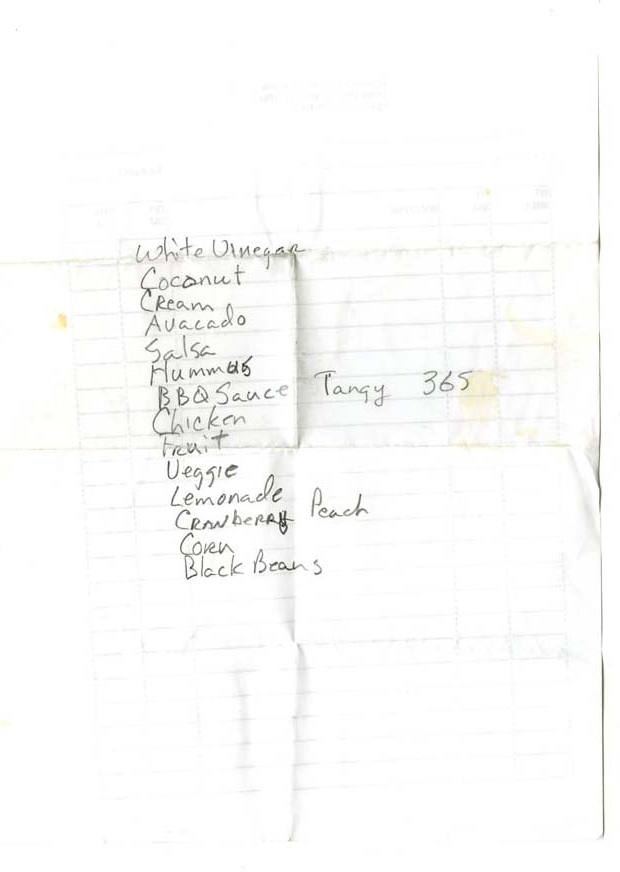 White Vinegar
Coconut
Cream
Avacado
Salsa
Hummus
BBQ Sauce Tangy 365
Chicken
Fruit
Veggie
Lemonade
Cranberry Peach
Corn
Black Beans